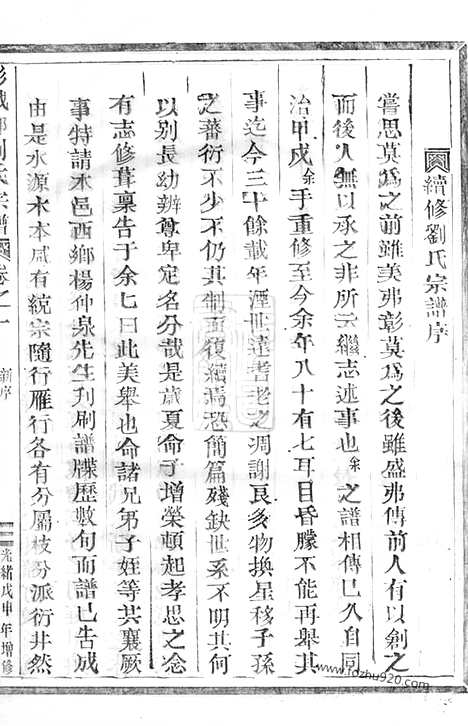 續修劉氏宗譜序
嘗思莫爲之前雖美弗彰莫爲之後雖盛弗傳前人有以創之
而後人無以承之非所云繼志述事也余之譜相傳已久自同
治甲戌余手重修至今余年八十有七耳目昏朦不能再舉其
事迄今三十餘載年湮世遠耆老之凋謝良多物換星移子孫
之蕃衍不少不仍其制而復續焉恐簡篇殘缺世系不明其何
以别長幼辨尊卑定名分哉是歲夏命子增榮頓起孝思之念
有志修葺稟告于余七曰此美舉也命諸兄弟子姪等共襄厥
事特請本邑西鄉楊仲泉先生刋刷譜牒歷數旬而譜已告成
由是水源木本咸有統宗隨行雁行各有分屬枝分派衍井然
彭城郡劉氏宗譜
卷之一
新序
光緒戊申年增修
www.fozhu920.com